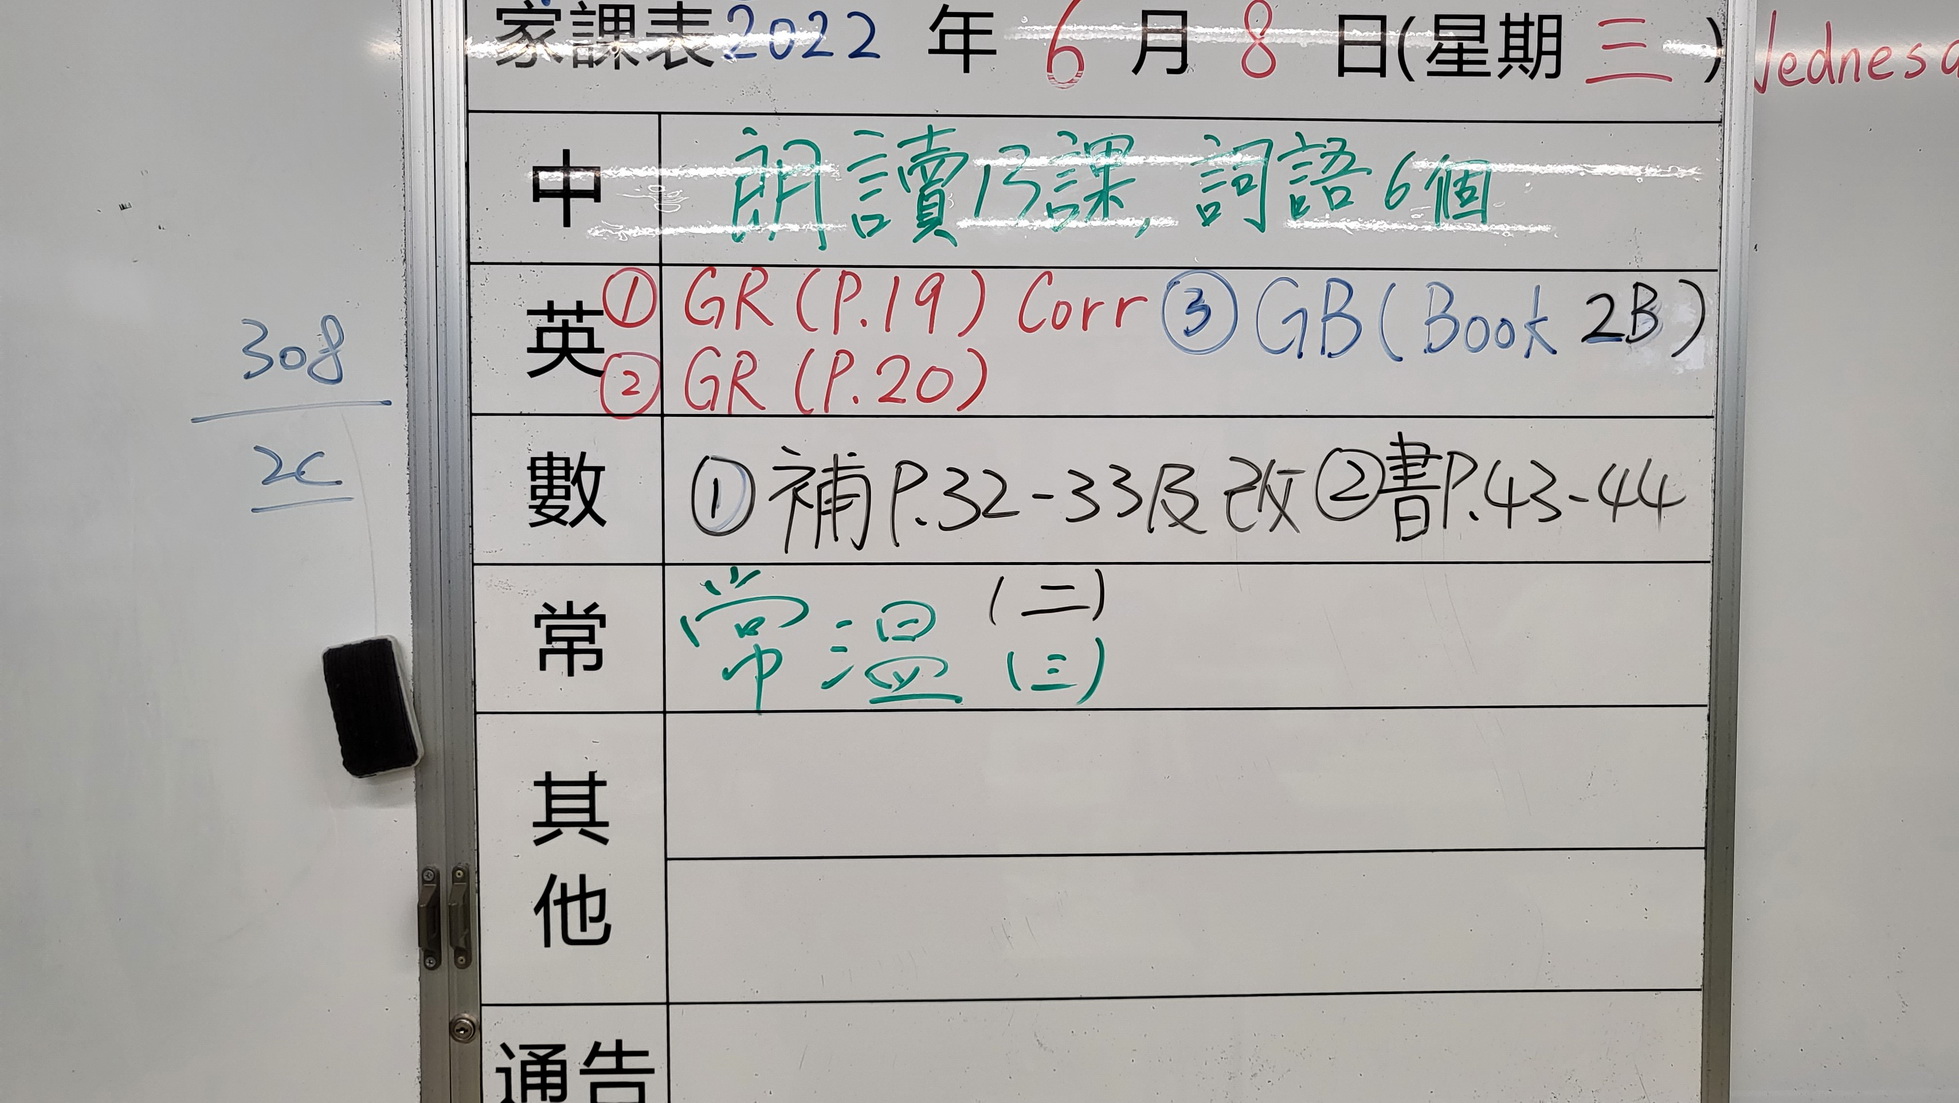 家課表2022 年 6 月 8 日(星期 三 ) Wednesd
中 朗讀13課, 詞語6個
英 ① GR (P.19) Corr ③ GB (Book 2B)
② GR (P.20)
數 ① 補 P.32-33及改 ② 書P.43-44
常 常溫 (二)
(三)
其他
通告
308
2C